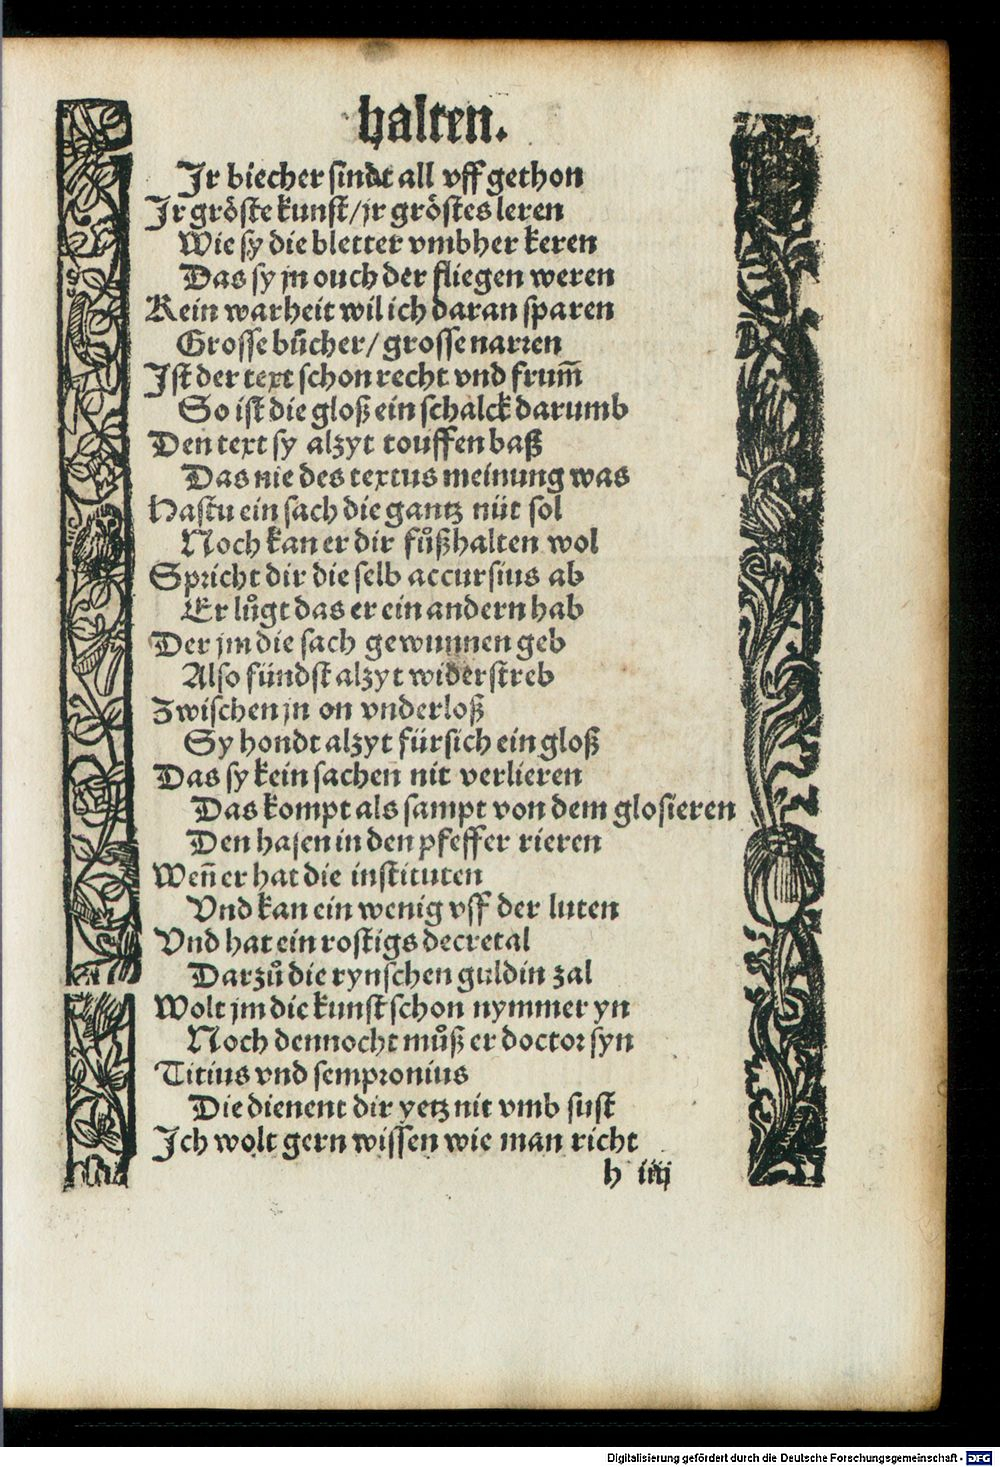 halten.
Jr biecher sindt all vff gethon
Jr gröste kunst/jr gröstes leren
Wie sy die bletter vmbher keren
Das sy jn ouch der fliegen weren
Kein warheit wil ich daran sparen
Grosse bůcher/ grosse narren
Jst der text schon recht vnd frum̃
So ist die gloß ein schalck darumb
Den text sy alzyt touffen baß
Das nie des textus meinung was
Hastu ein sach die gantz nüt sol
Noch kan er dir fůßhalten wol
Spricht dir die selb accursius ab
Er lůgt das er ein andern hab
Der jm die sach gewunnen geb
Also fündst alzyt widerstreb
Zwischen jn on vnderloß
Sy hondt alzyt fürsich ein gloß
Das sy kein sachen nit verlieren
Das kompt als sampt von dem glosieren
Den hasen in den pfeffer rieren
Wen̄ er hat die instituten
Vnd kan ein wenig vff der luten
Vnd hat ein rostigs decretal
Darzů die rynschen guldin zal
Wolt jm die kunst schon nymmer yn
Noch dennocht můß er doctor syn
Titius vnd sempronius
Die dienent dir yetz nit vmb sust
Jch wolt gern wissen wie man richt
h iiij
Digitalisierung gefördert durch die Deutsche Forschungsgemeinschaft - DFG